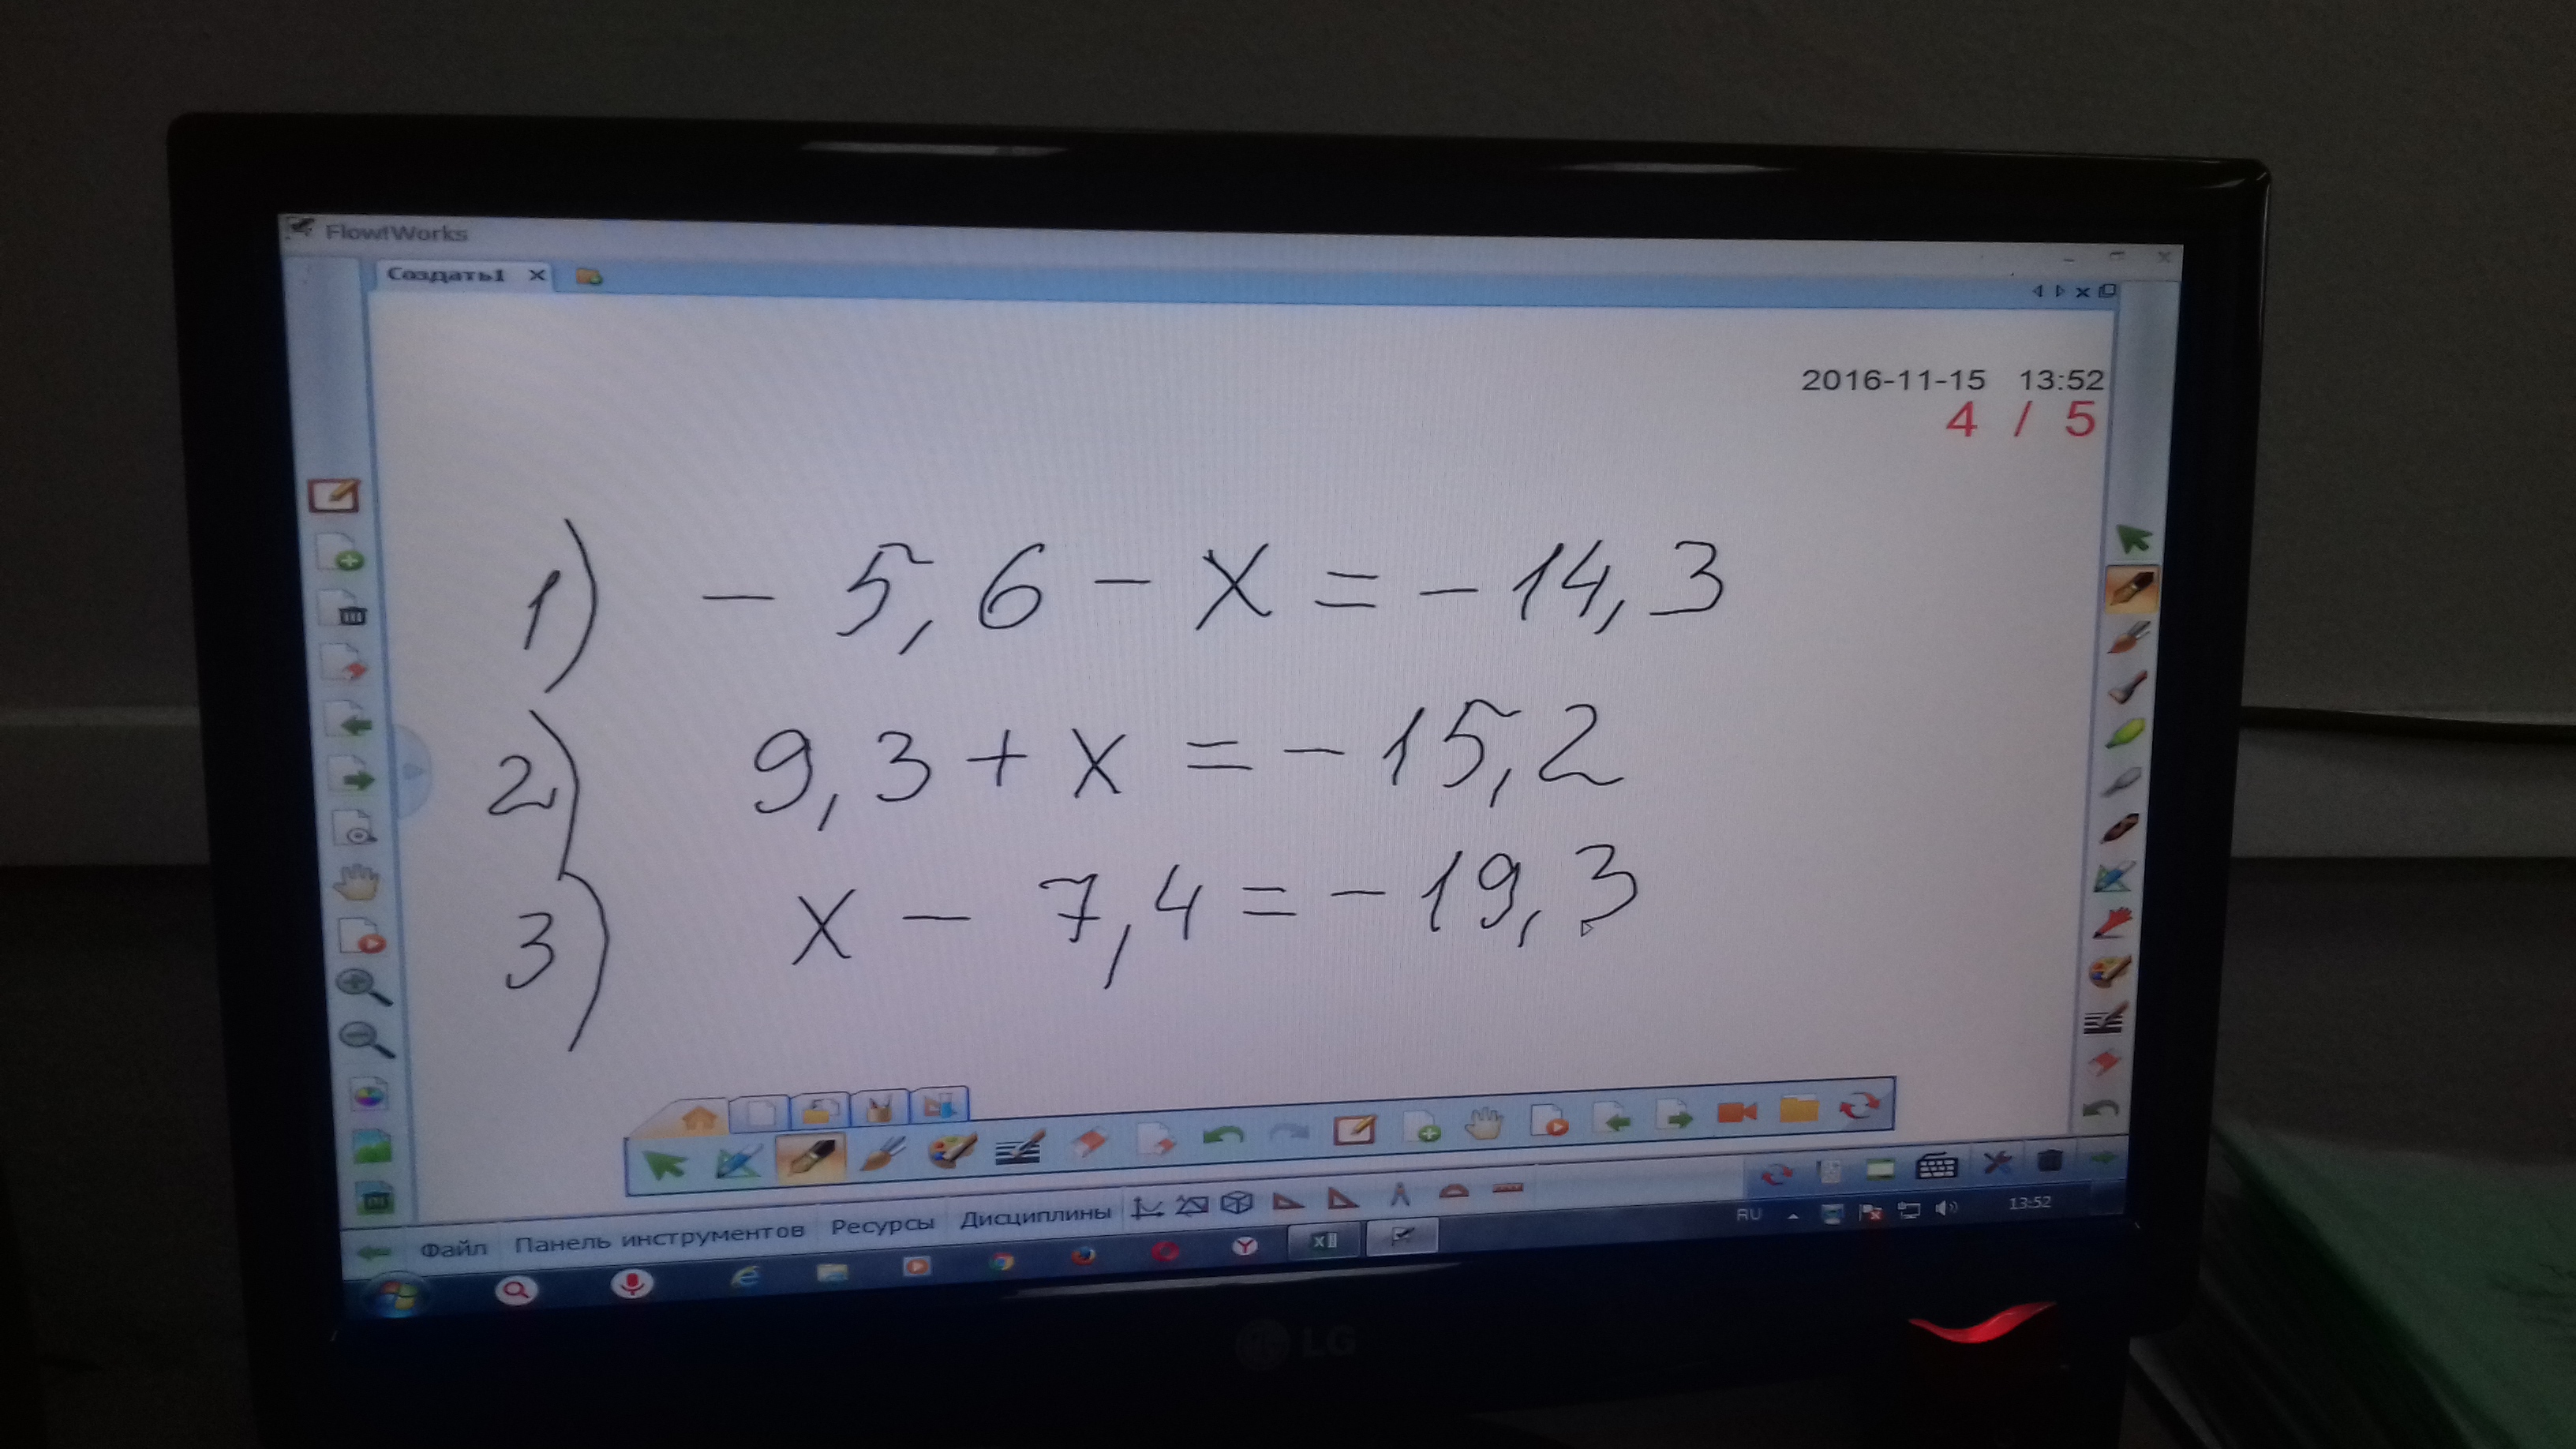 Flow!Works
Создать1
2016-11-15 13:52
4 / 5
1) - 5,6 - x = - 14,3
2) 9,3 + x = - 15,2
3) x - 7,4 = - 19,3
Файл Панель инструментов Ресурсы Дисциплины
RU 13:52
LG